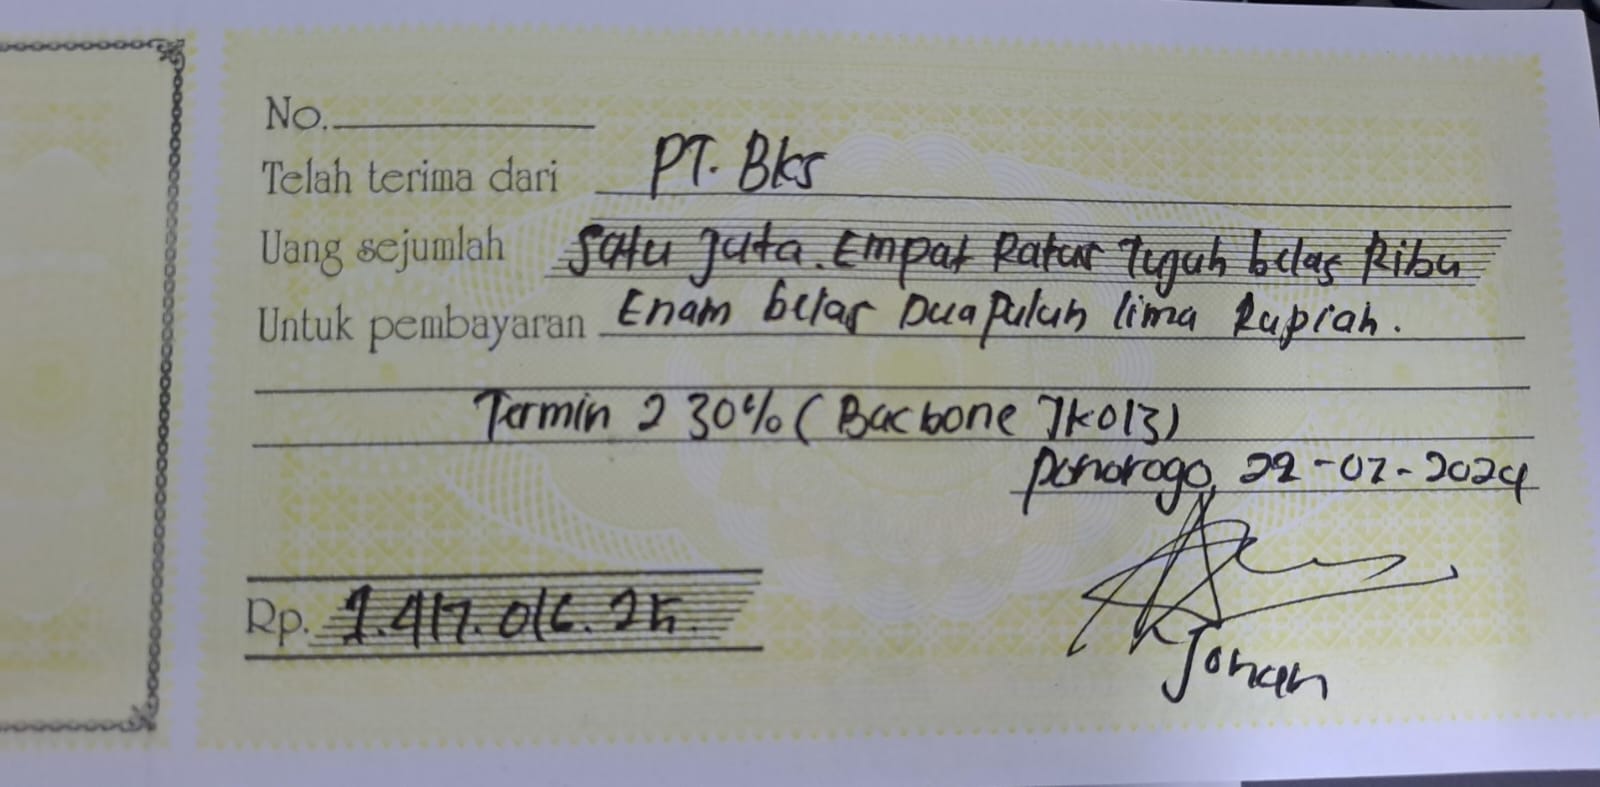 No.
Telah terima dari PT. Bks
Uang sejumlah Satu Juta. Empat Ratus Tujuh belas Ribu
Untuk pembayaran Enam belas Dua Puluh lima Rupiah.
Termin 2 30% ( Bacbone JK013)
Ponorogo, 22-02-2024
Rp. 1.417.016.25
Johan